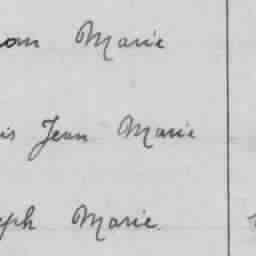 Marie
is Jean Marie
eph Marie